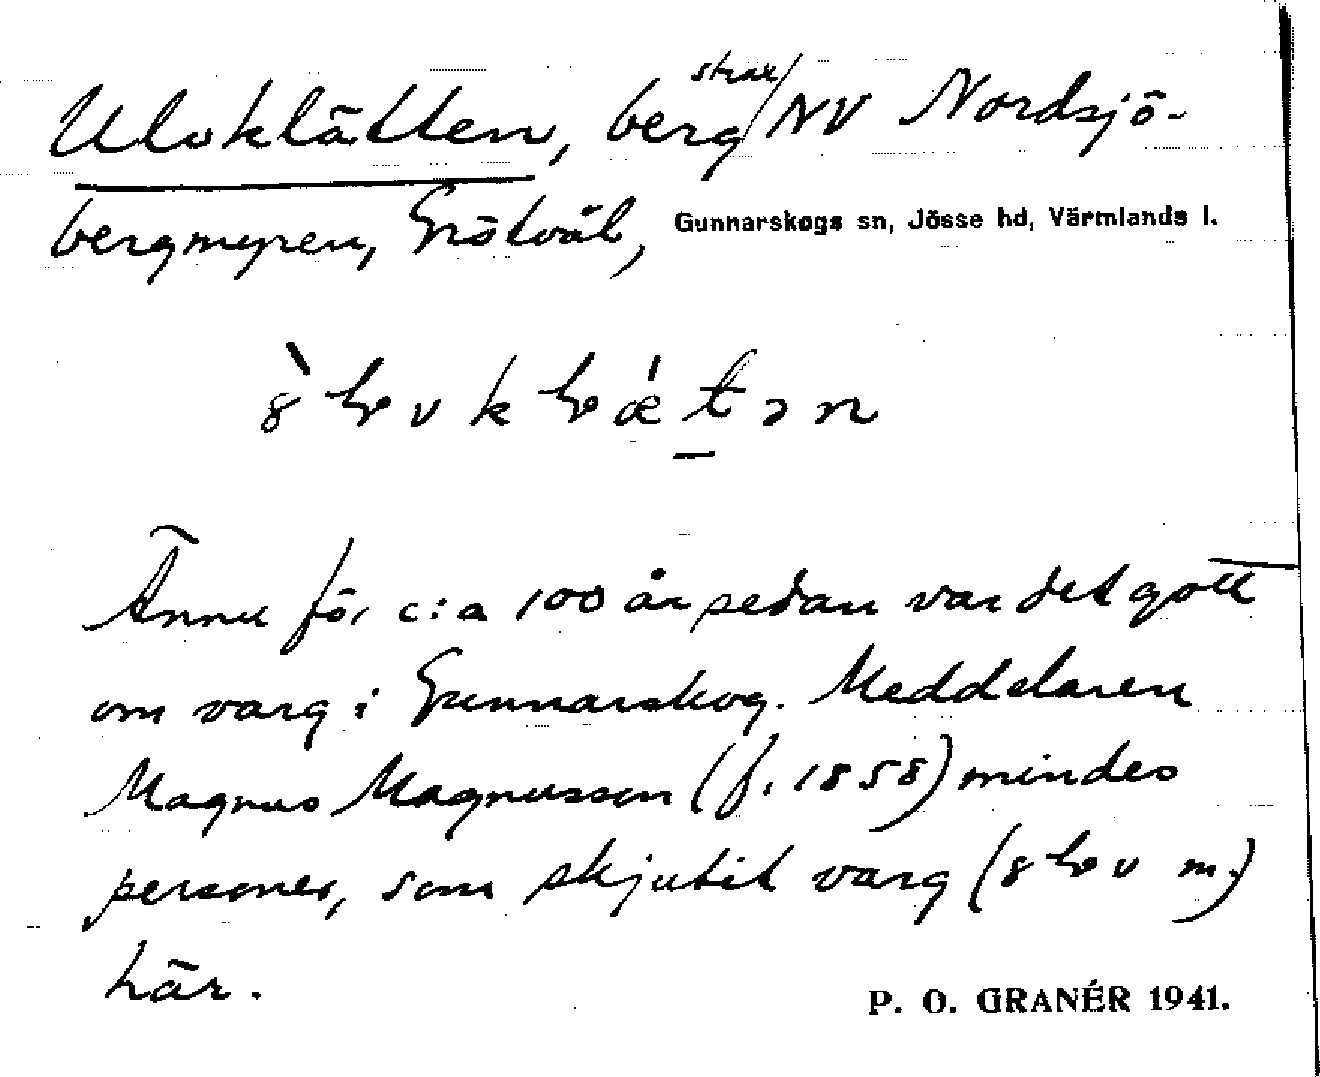 Ulvklätten, berg strax NV Nordsjö-
bergmyren, Grötvål, Gunnarskogs sn, Jösse hd, Värmlands l.
Ännu för c:a 100 år sedan var det gott
om varg i Gunnarskog. Meddelaren
Magnus Magnusson (f. 1858) mindes
personer, som skjutit varg ( m.)
här.
P. O. GRANÉR 1941.